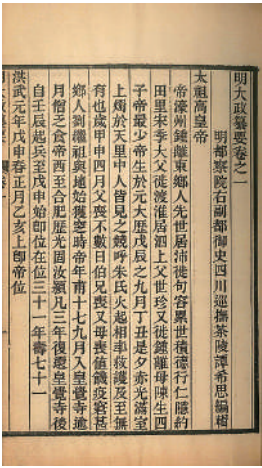 明大政纂要卷之一
明都察院右副都御史四川巡撫茶陵譚希思編輯
太祖高皇帝
帝濠州鍾離東鄉人先世居沛徙句容累世積德行仁隱約
田里宋季大父徙渡淮居泗上父世珍又徙鍾離母陳生四
子帝最少帝生於元大歷戊辰之九月丁丑是夕赤光滿室
上燭於天里中人皆見之競呼朱氏火起相率救護及至無
有也歲甲申四月父喪不數日伯兄喪又母喪値饑疫窘甚
鄉人劉繼祖與地始獲窆時帝年甫十七九月入皇覺寺逾
月僧乏食帝西至合肥歷光固汝潁凡三年復還皇覺寺後
自壬辰起兵至戊申始卽位在位三十一年壽七十一
洪武元年戊申春正月乙亥上卽帝位
明大政纂要